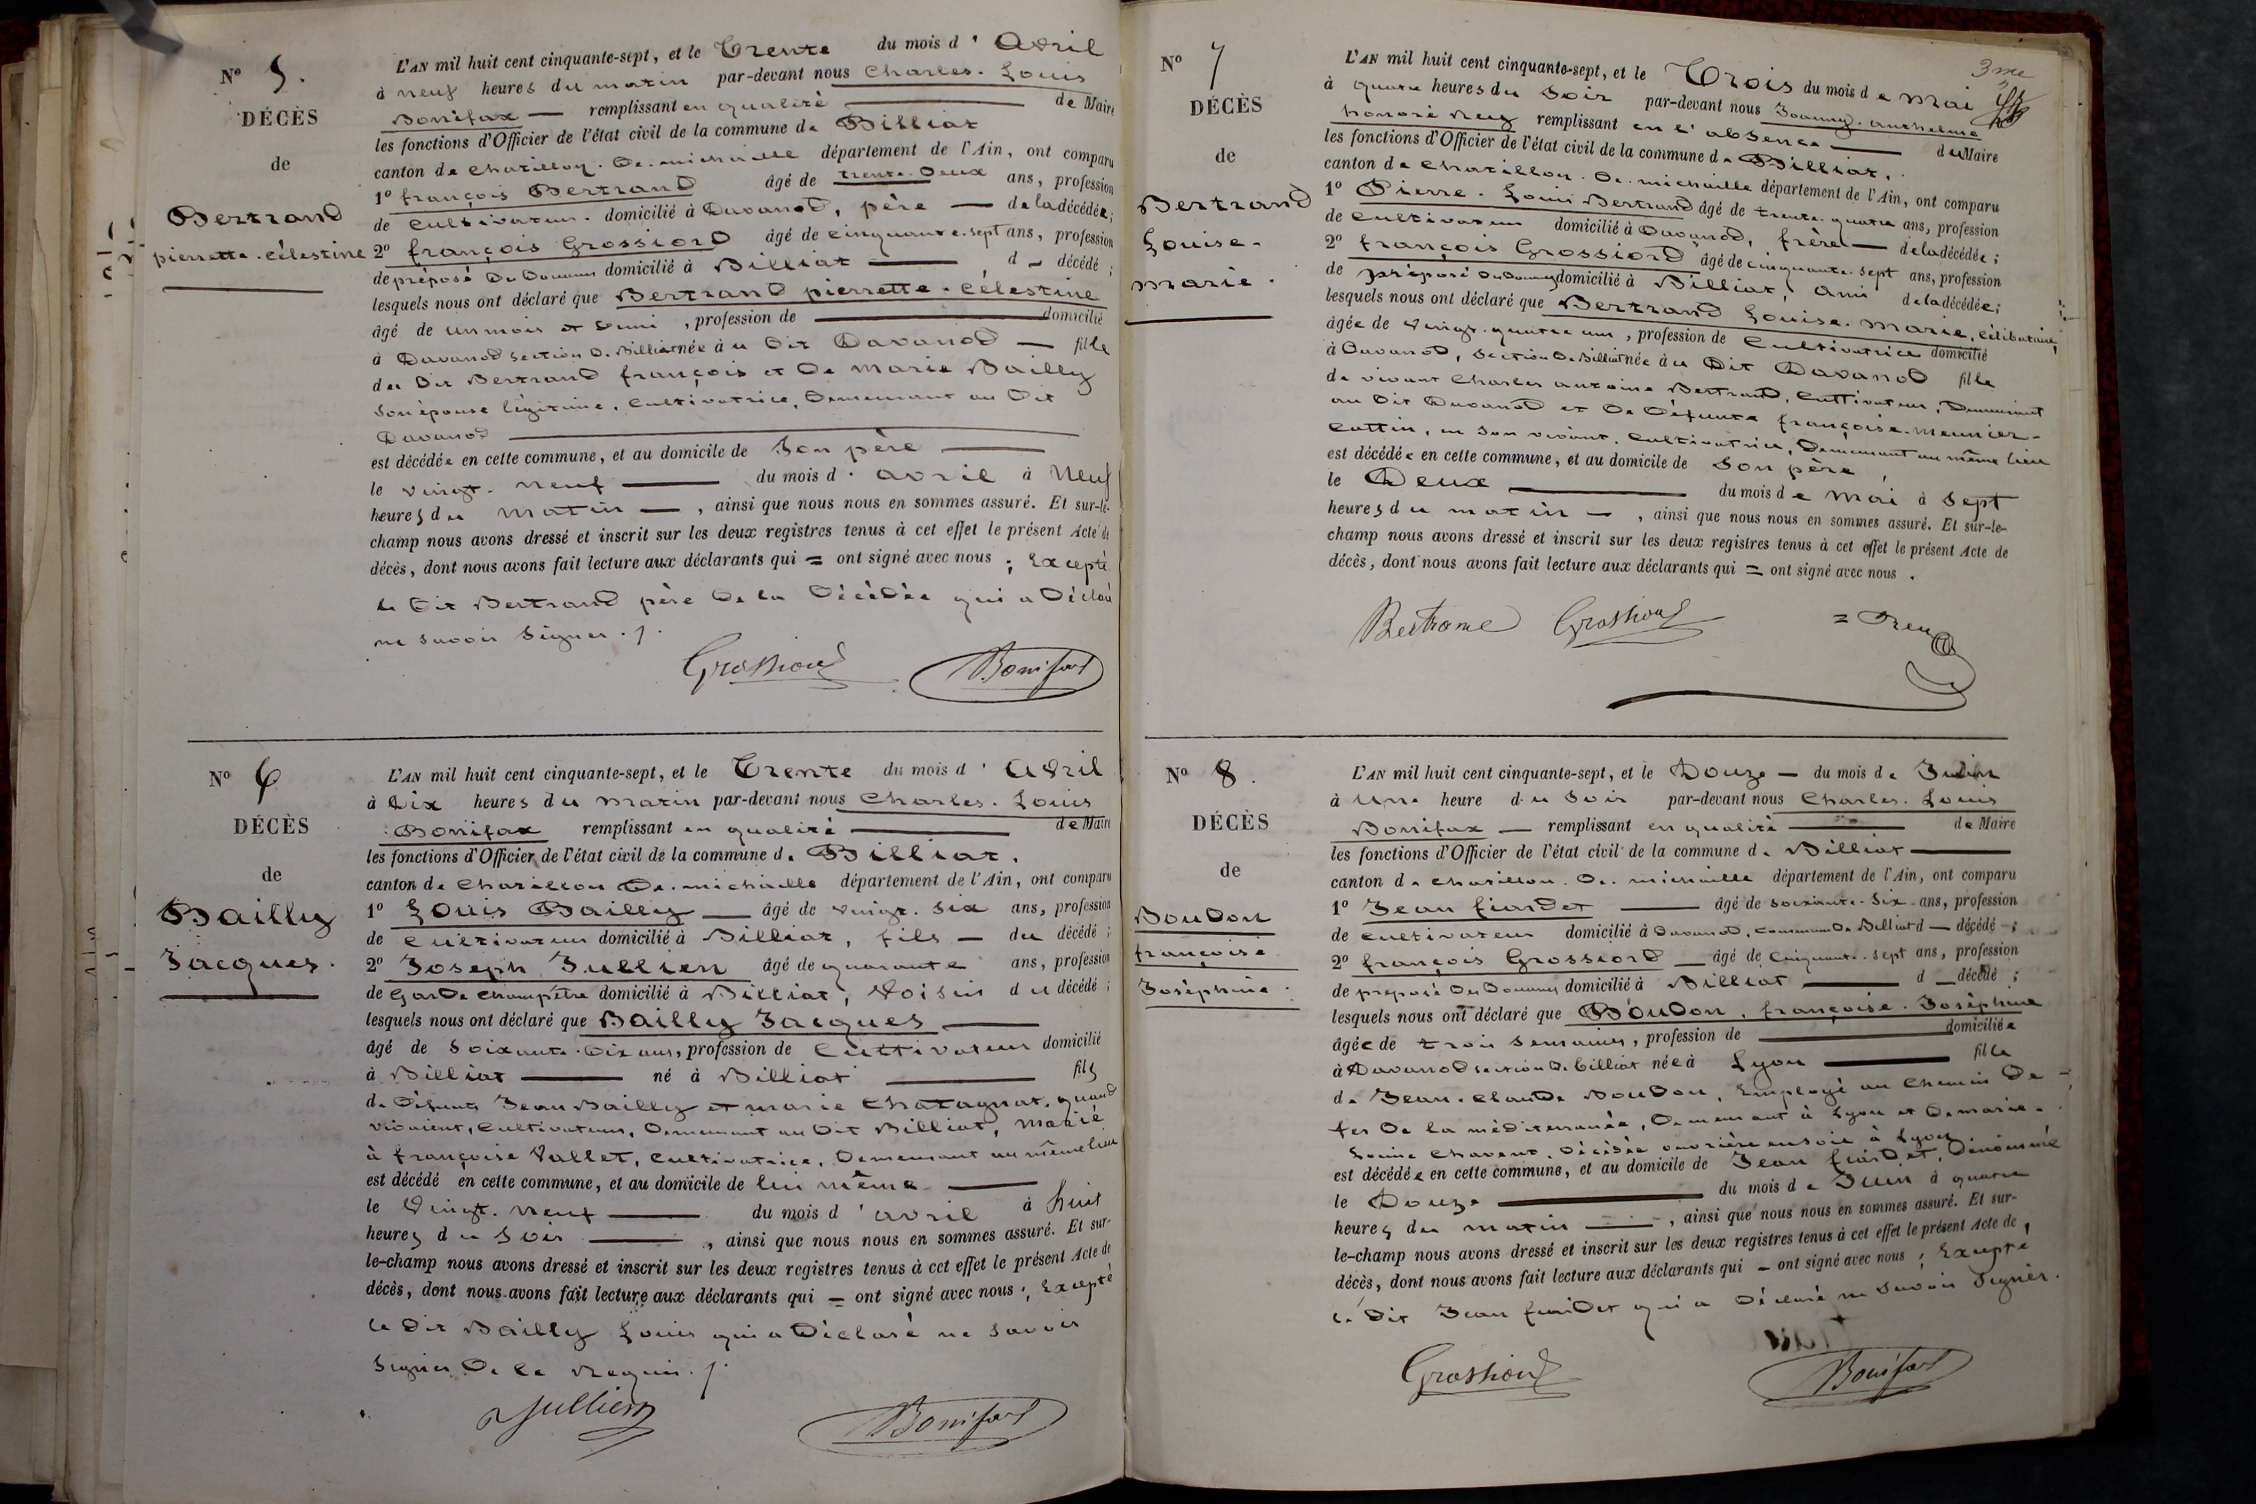 N° 5.
DÉCÈS
de
Bertrand
pierrette. célestine
L'AN mil huit cent cinquante-sept, et le Trente du mois d' Avril
à neuf heures du matin par-devant nous Charles. Louis
Bonifax — remplissant en qualité — de Maire
les fonctions d'Officier de l'état civil de la commune de Billiat
canton de Chatillon. De. michaille département de l'Ain, ont comparu
1° françois Bertrand âgé de trente. Deux ans, profession
de Cultivateur. domicilié à Davanod, père — de la décédée;
2° françois Grossiord âgé de cinquante. sept ans, profession
de préposé Des Douanes domicilié à Billiat — , d — décédé ;
lesquels nous ont déclaré que Bertrand pierrette. Célestine
âgé de un mois et Demi , profession de — domicilié
à Davanod section De Billiat née à u Dit Davanod — fille
du Dit Bertrand françois et De Marie Bailly
son épouse légitime, Cultivatrice, Demeurant au Dit
Davanod —
est décédée en cette commune, et au domicile de Son père —
le vingt. neuf — du mois d' avril à Neuf
heures du matin — , ainsi que nous nous en sommes assuré. Et sur-le-
champ nous avons dressé et inscrit sur les deux registres tenus à cet effet le présent Acte de
décès, dont nous avons fait lecture aux déclarants qui = ont signé avec nous ; Excepté
le Dit Bertrand père De la Décédée qui a Déclaré
ne savoir Signer. /.
Grossiord Bonifax
N° 6
DÉCÈS
de
Bailly
Jacques.
L'AN mil huit cent cinquante-sept, et le Trente du mois d' Avril
à Dix heures du matin par-devant nous Charles. Louis
Bonifax remplissant en qualité — de Maire
les fonctions d'Officier de l'état civil de la commune de Billiat.
canton de Chatillon De. michaille département de l'Ain, ont comparu
1° Louis Bailly — âgé de vingt. Six ans, profession
de Cultivateur domicilié à Billiat, fils — du décédé ;
2° Joseph Jullien âgé de quarante ans, profession
de Garde champêtre domicilié à Billiat, Voisin du décédé ;
lesquels nous ont déclaré que Bailly Jacques —
âgé de Soixante. Dix ans, profession de Cultivateur domicilié
à Billiat — né à Billiat — fils
de Défunts Jean Bailly et marie Chatagnat, quand
vivaient, Cultivateurs, Demeurant au Dit Billiat, Marié
à françoise Vallet, Cultivatrice, Demeurant au même lieu
est décédé en cette commune, et au domicile de lui même —
le Vingt. neuf — du mois d' avril à huit
heures du Soir — , ainsi que nous nous en sommes assuré. Et sur-
le-champ nous avons dressé et inscrit sur les deux registres tenus à cet effet le présent Acte de
décès, dont nous avons fait lecture aux déclarants qui = ont signé avec nous ; Excepté
le Dit Bailly Louis qui a Déclaré ne savoir
Signer De ce Requis. /.
Jullien Bonifax
N° 7
DÉCÈS
de
Bertrand
Louise.
marie.
3me
L'AN mil huit cent cinquante-sept, et le Trois du mois de Mai
à quatre heures du Soir par-devant nous Joanny. anthelme
honoré Rey remplissant en l'absence — du Maire
les fonctions d'Officier de l'état civil de la commune de Billiat.
canton de Chatillon. De. michaille département de l'Ain, ont comparu
1° Pierre. Louis Bertrand âgé de trente. quatre ans, profession
de Cultivateur domicilié à Davanod, frère — de la décédée ;
2° françois Grossiord âgé de cinquante. sept ans, profession
de préposé Des Douanes domicilié à Billiat, ami de la décédée;
lesquels nous ont déclaré que Bertrand Louise. Marie, Célibataire,
âgée de vingt. quatre ans, profession de Cultivatrice domicilié
à Davanod, Section De Billiat née à u Dit Davanod fille
de vivant Charles antoine Bertrand, Cultivateur, Demeurant
au Dit Davanod et De Défunte françoise. Meunier-
Cattin, en Son vivant. Cultivatrice, Demeurant au même lieu
est décédée en cette commune, et au domicile de Son père
le Deux — du mois de Mai à Sept
heures du matin — , ainsi que nous nous en sommes assuré. Et sur-le-
champ nous avons dressé et inscrit sur les deux registres tenus à cet effet le présent Acte de
décès, dont nous avons fait lecture aux déclarants qui = ont signé avec nous .
Bertrand Grossiord = Rey
N° 8.
DÉCÈS
de
Boudon
françoise
Joséphine.
L'AN mil huit cent cinquante-sept, et le Douze — du mois de Juin
à Une heure du Soir par-devant nous Charles. Louis
Bonifax — remplissant en qualité — de Maire
les fonctions d'Officier de l'état civil de la commune de Billiat —
canton de Chatillon. De. michaille département de l'Ain, ont comparu
1° Jean fiardet — âgé de soixante. Six ans, profession
de Cultivateur domicilié à Davanod, commune De Billiat d — décédé ;
2° françois Grossiord — âgé de Cinquante. Sept ans, profession
de préposé Des Douanes domicilié à Billiat — d — décédé ;
lesquels nous ont déclaré que Boudon, françoise. Joséphine
âgée de trois Semaines, profession de — domiciliée
à Davanod section De billiat née à Lyon — fille
de Jean. Claude Boudon, Employé au Chemin De
fer De la méditerranée, Demeurant à Lyon et De marie.
Louise Chavent, Décédée ouvrière en soie à Lyon
est décédée en cette commune, et au domicile de Jean fiardet, Dénommé
le Douze — du mois de Juin à quatre
heures du matin — , ainsi que nous nous en sommes assuré. Et sur-
le-champ nous avons dressé et inscrit sur les deux registres tenus à cet effet le présent Acte de
décès, dont nous avons fait lecture aux déclarants qui — ont signé avec nous ; Excepté
le Dit Jean fiardet qui a Déclaré ne Savoir Signer.
Grossiord Bonifax